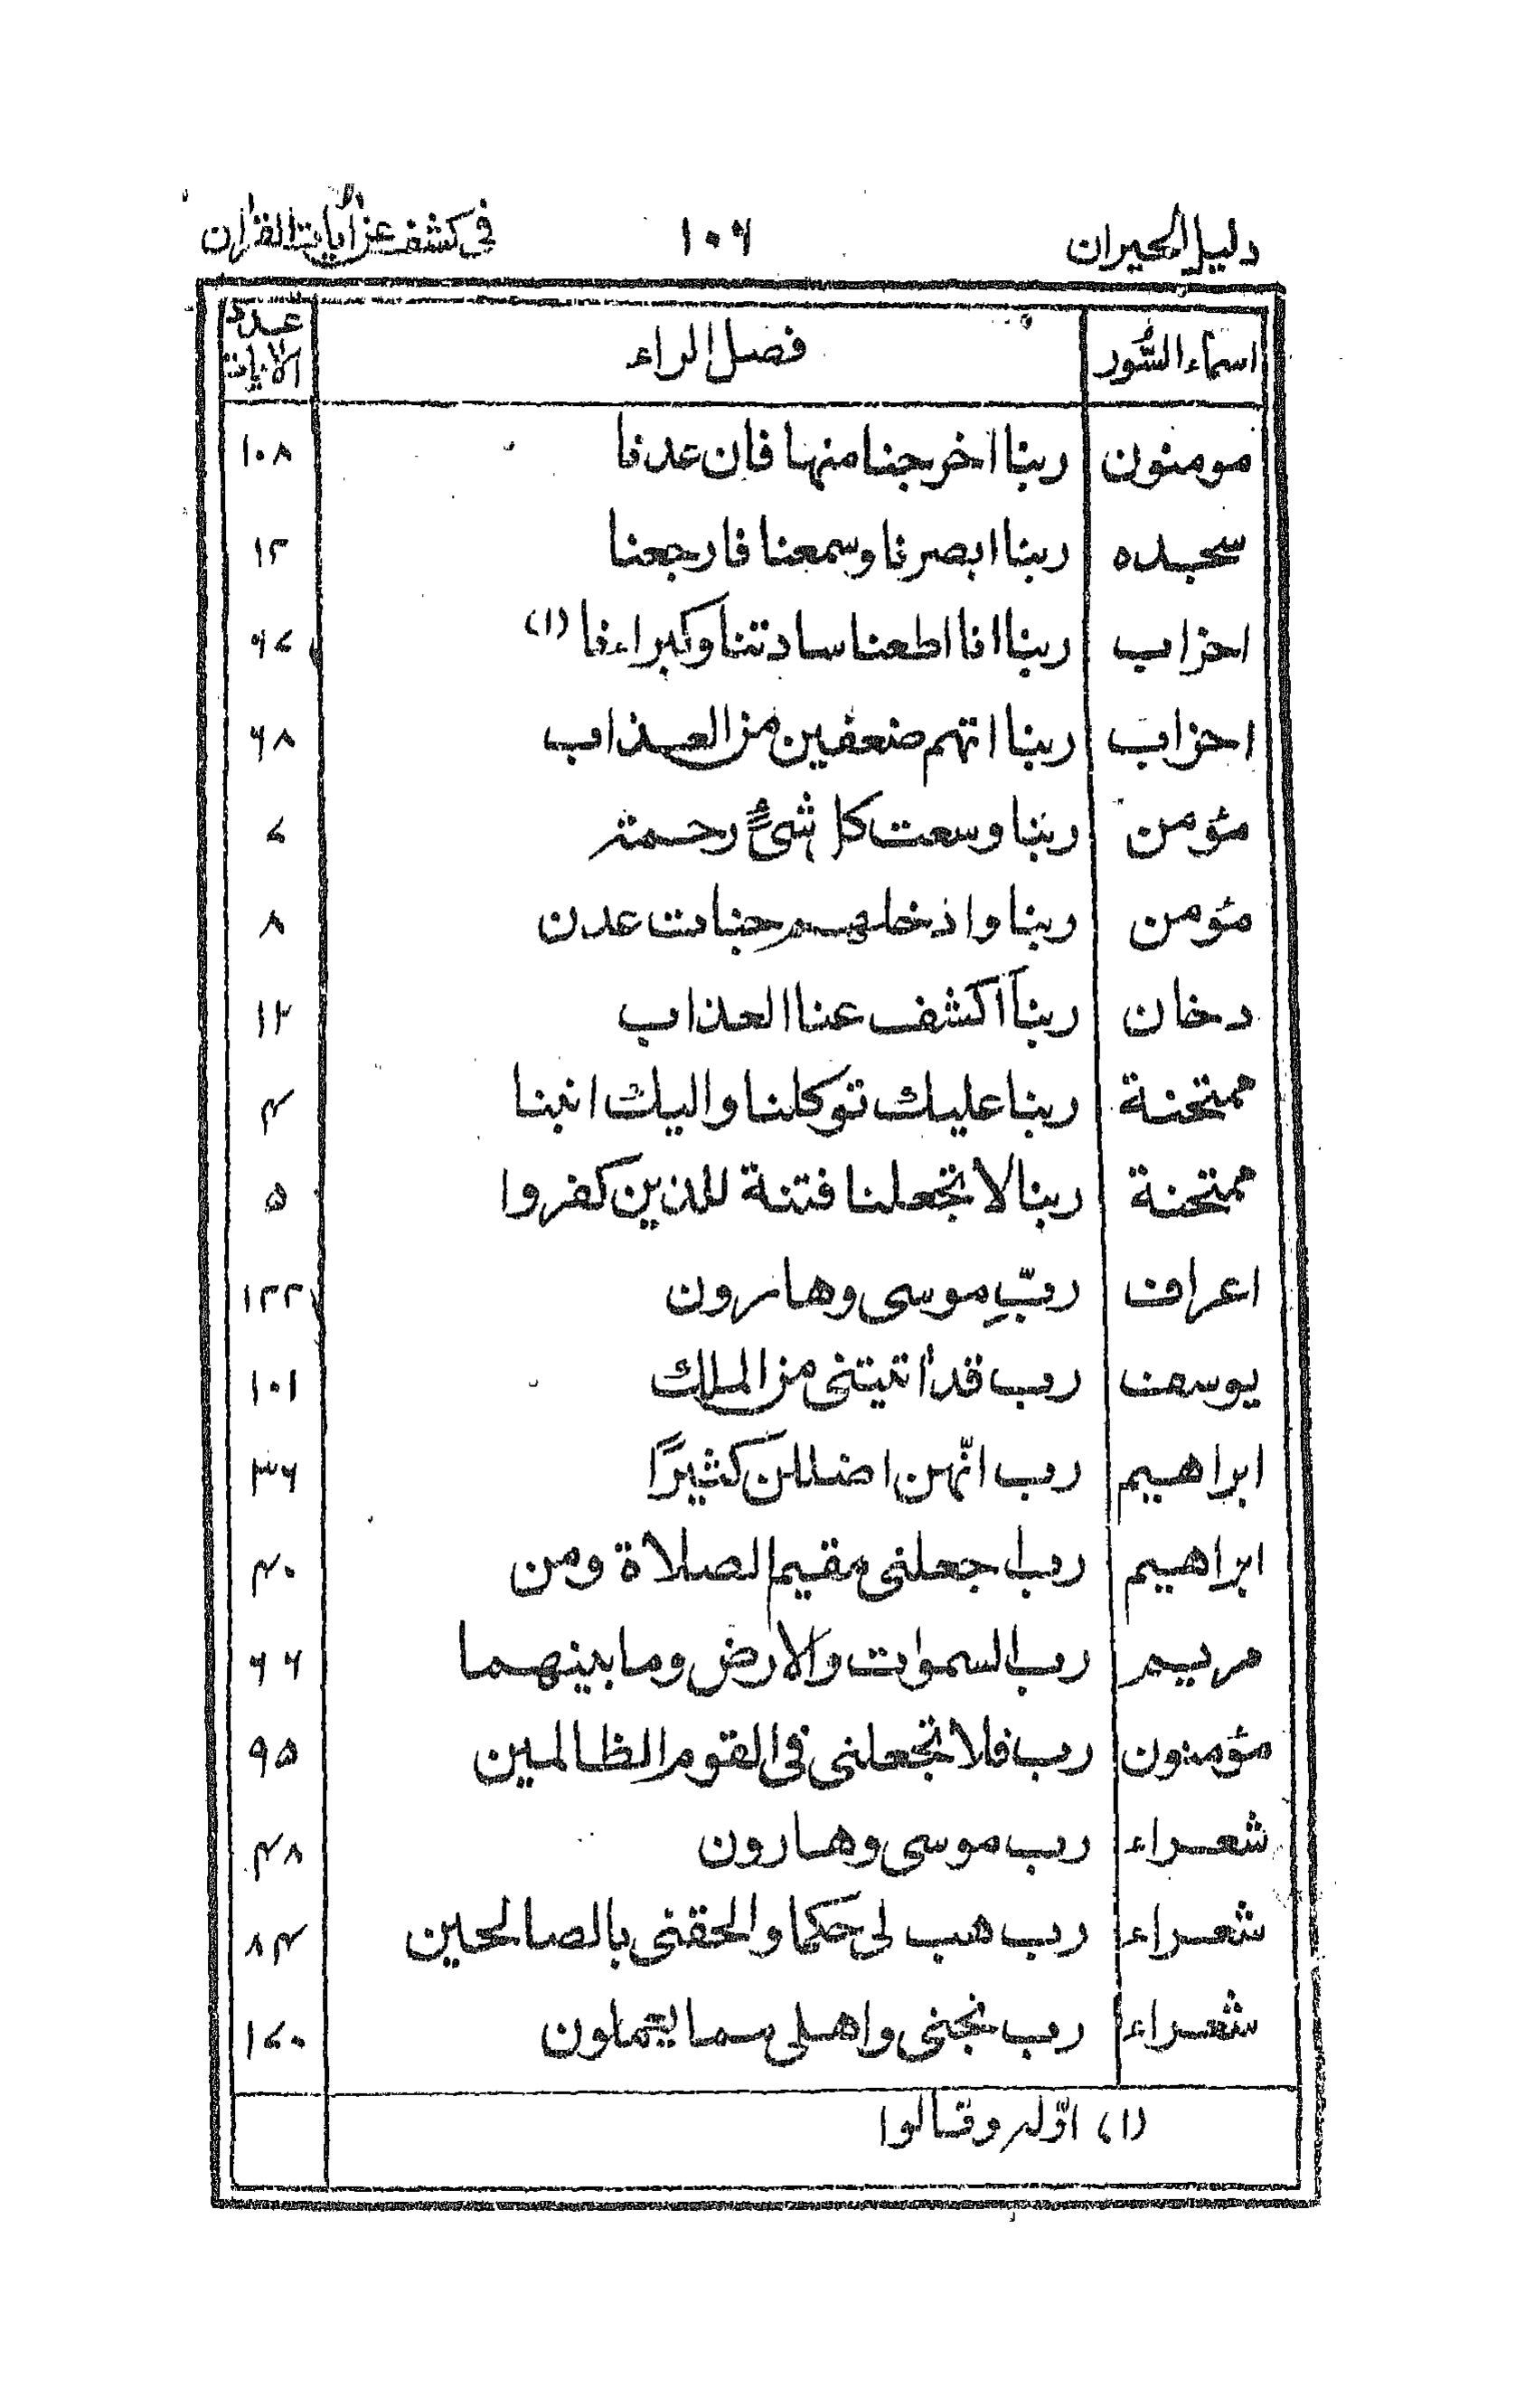 دليل الحيران ۱۰۶ في كشف عن اٰيات القراٰن
اسماء السُّور فصل الراء عدد الاٰيات
مومنون ربنا اخرجنا منها فان عدنا ۱۰۸
سجده ربنا ابصرنا وسمعنا فارجعنا ۱۲
احزاب ربنا انا اطعنا سادتنا وكبراءنا (۱) ۶۷
احزاب ربنا اتهم ضعفين من العذاب ۶۸
مؤمن ربنا وسعت كل شئٍ رحمة ۷
مؤمن ربنا وادخلهم جنات عدن ۸
دخان ربنا اكشف عنا العذاب ۱۲
ممتحنة ربنا عليك توكلنا واليك انبنا ۴
ممتحنة ربنا لا تجعلنا فتنة للذين كفروا ۵
اعراف ربِّ موسى وهارون ۱۲۲
يوسف رب قد اٰتيتنى من الملك ۱۰۱
ابراهيم رب انّهن اضللن كثيرًا ۳۶
ابراهيم رب اجعلنى مقيم الصلاة ومن ۴۰
مريم رب السموات والارض وما بينهما ۶۶
مؤمنون رب فلا تجعلنى فى القوم الظالمين ۹۵
شعراء رب موسى وهارون ۴۸
شعراء رب هب لى حكما والحقنى بالصالحين ۸۴
شعراء رب نجنى واهلى مما يعملون ۱۷۰
(۱) اوّله وقالوا